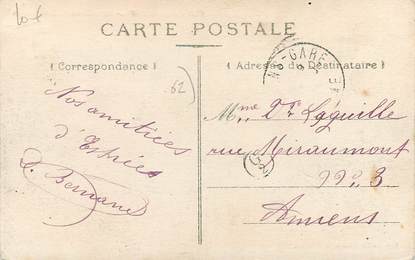 10 f
CARTE POSTALE
Correspondance
Adresse du Destinataire
GARE
62
Nos amitiées
d'
Bernard
Mme Vve Léguille
rue Miraumont
n° 3
Amiens